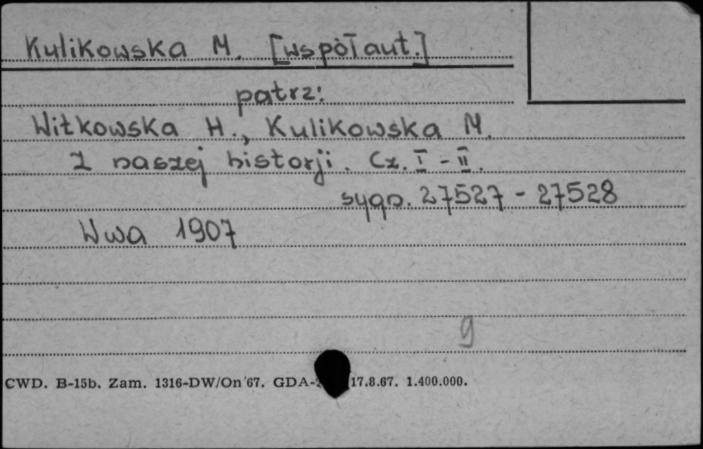 Kulikowska M. [współaut.]
patrz:
Witkowska H., Kulikowska M.
Z naszej historji. Cz. I - II.
sygn. 27527 - 27528
Wwa 1907
9
CWD. B-15b. Zam. 1316-DW/On 67. GDA- 17.8.67. 1.400.000.